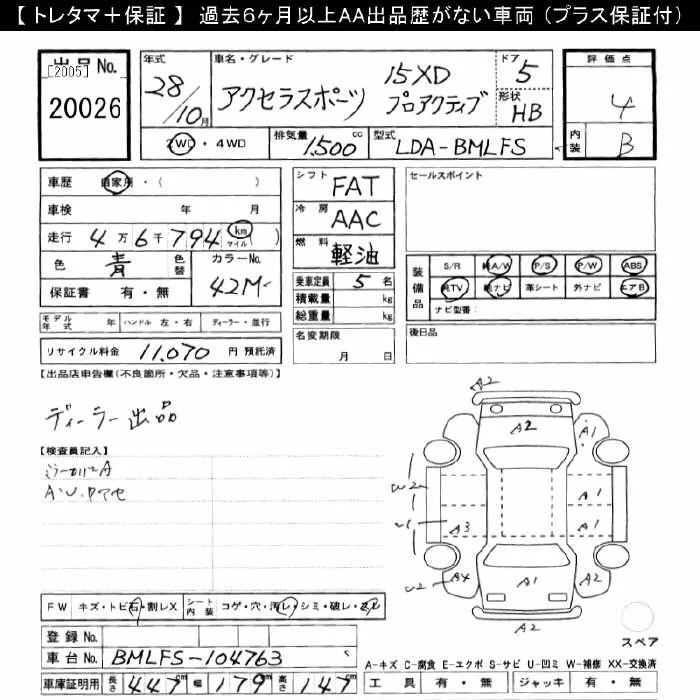 【 トレタマ＋保証 】 過去6ヶ月以上AA出品歴がない車両 (プラス保証付)
出品No.
[2005]
20026
年式
28/10月
車名・グレード
アクセラスポーツ
15XD
プロアクティブ
ドア
5
形状
HB
評価点
4
内装
B
2WD・4WD
排気量
1,500 cc
型式
LDA-BMLFS
車歴 自家用・( )
車検 年 月
走行 4万6千794 km マイル ( )
色 青 色替 カラーNo. 42M
保証書 有・無
シフト FAT
冷房 AAC
燃料 軽油
乗車定員 5 名
積載量 kg
総重量 kg
名変期限
月 日
セールスポイント
装備品
S/R 純A/W P/S P/W ABS
純TV 純ナビ 革シート 外ナビ エアB
ナビ型番：
後日品
モデル年式 年 ハンドル 左・右 ディーラー・並行
リサイクル料金 11,070 円 預託済
【出品店申告欄(不良箇所・欠品・注意事項等)】
ディーラー出品
【検査員記入】
A2
A2
A1
W2
A1
W1
A3
A1
W2
A4
A1
A2
A2
スペア
FW キズ・トビ石・割レX シート内装 コゲ・穴・汚レ・シミ・破レ・スレ
登録No.
車台No. BMLFS-104763
車庫証明用 長さ 447cm 幅 179cm 高さ 147cm
A-キズ C-腐食 E-エクボ S-サビ U-凹ミ W-補修 XX-交換済
工具 有・無 ジャッキ 有・無